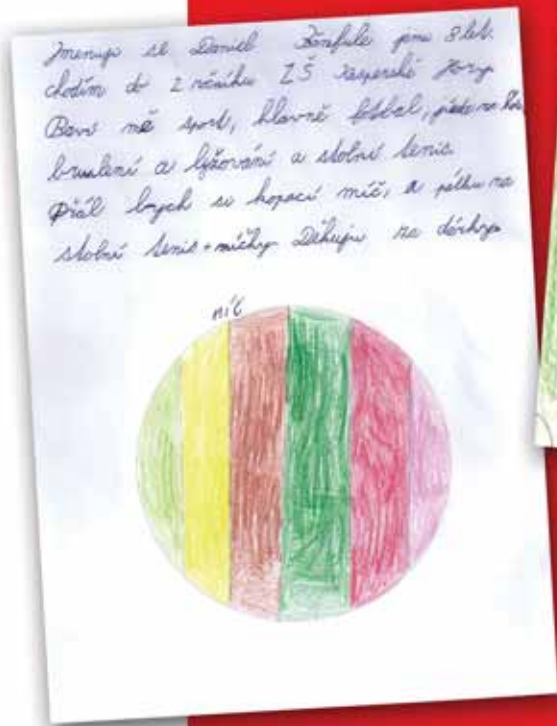 Jmenuji se Daniel jsem 8 let.
chodím do 2 ročníku ZŠ Kašperské Hory
Baví mě sport, hlavně fotbal, jízda na
bruslení a lyžování a stolní tenis.
Přál bych si kopací míč, a pálku na
stolní tenis + míčky Děkuju za dárky
míč